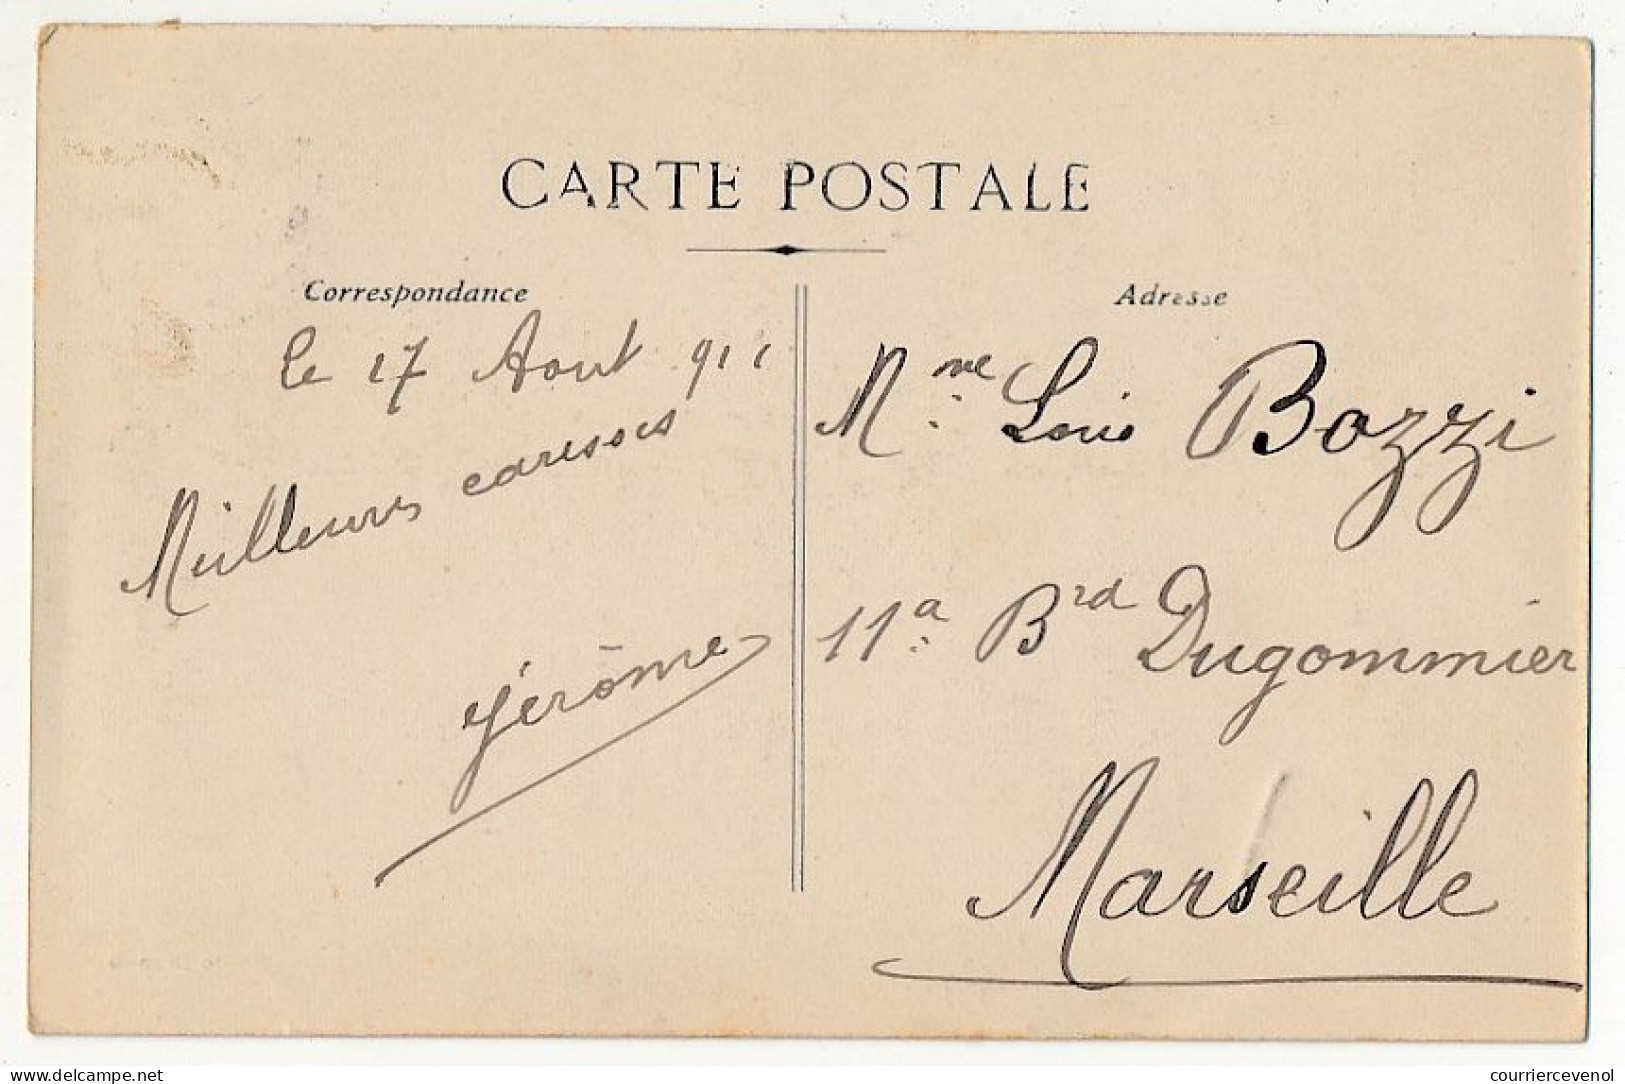 CARTE POSTALE
Correspondance
le 17 Aout 911
Meilleures caresses
Jérôme
Adresse
Mme Louis Bozzi
11a Brd Dugommier
Marseille
delcampe.net
courriercevenol